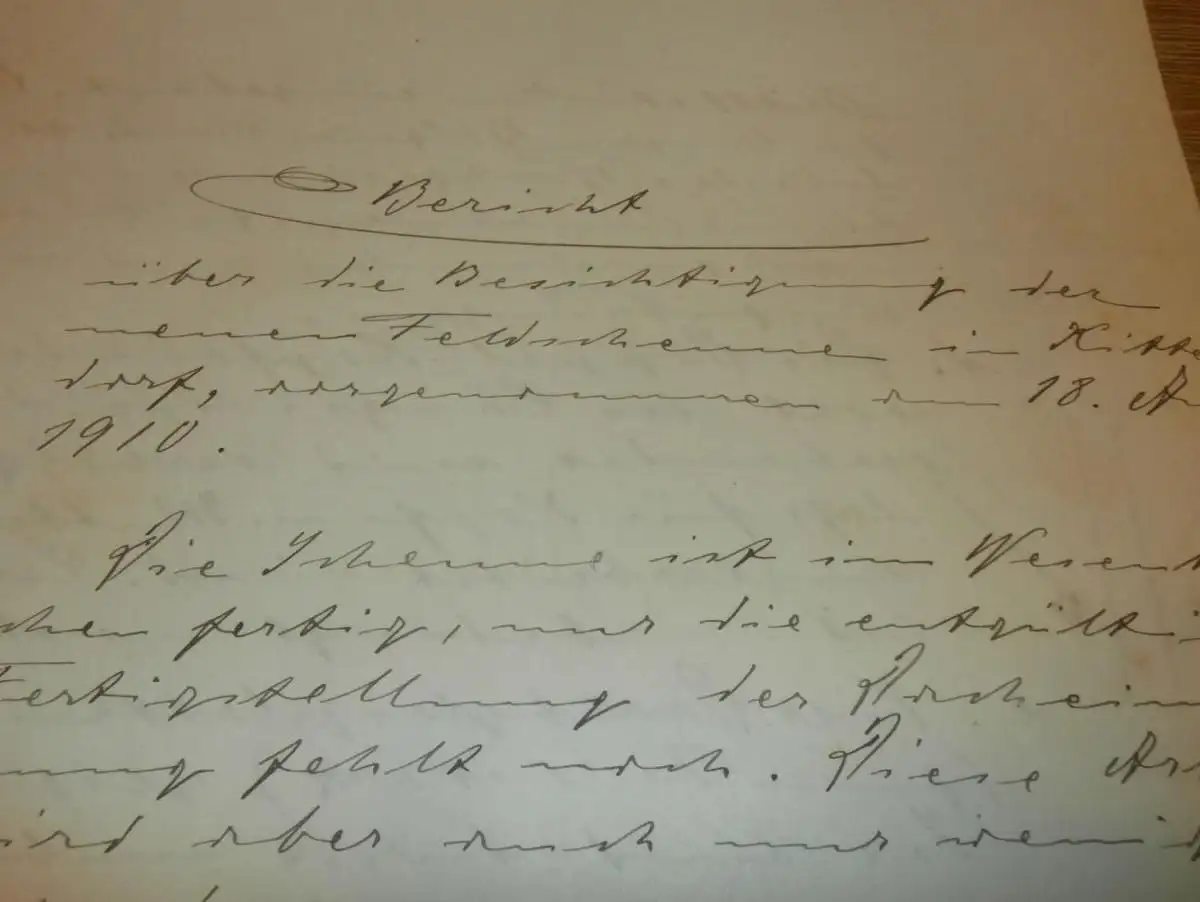 Bericht
über die Besichtigung der
neuen Feldscheune in Kitte
dorf, vorgenommen am 18. A
1910.
Die Scheune ist im Wesent
chen fertig, nur die entgülti
Fertigstellung der Dachein
ung fehlt noch. Diese Ar
ird aber auch nur wenig